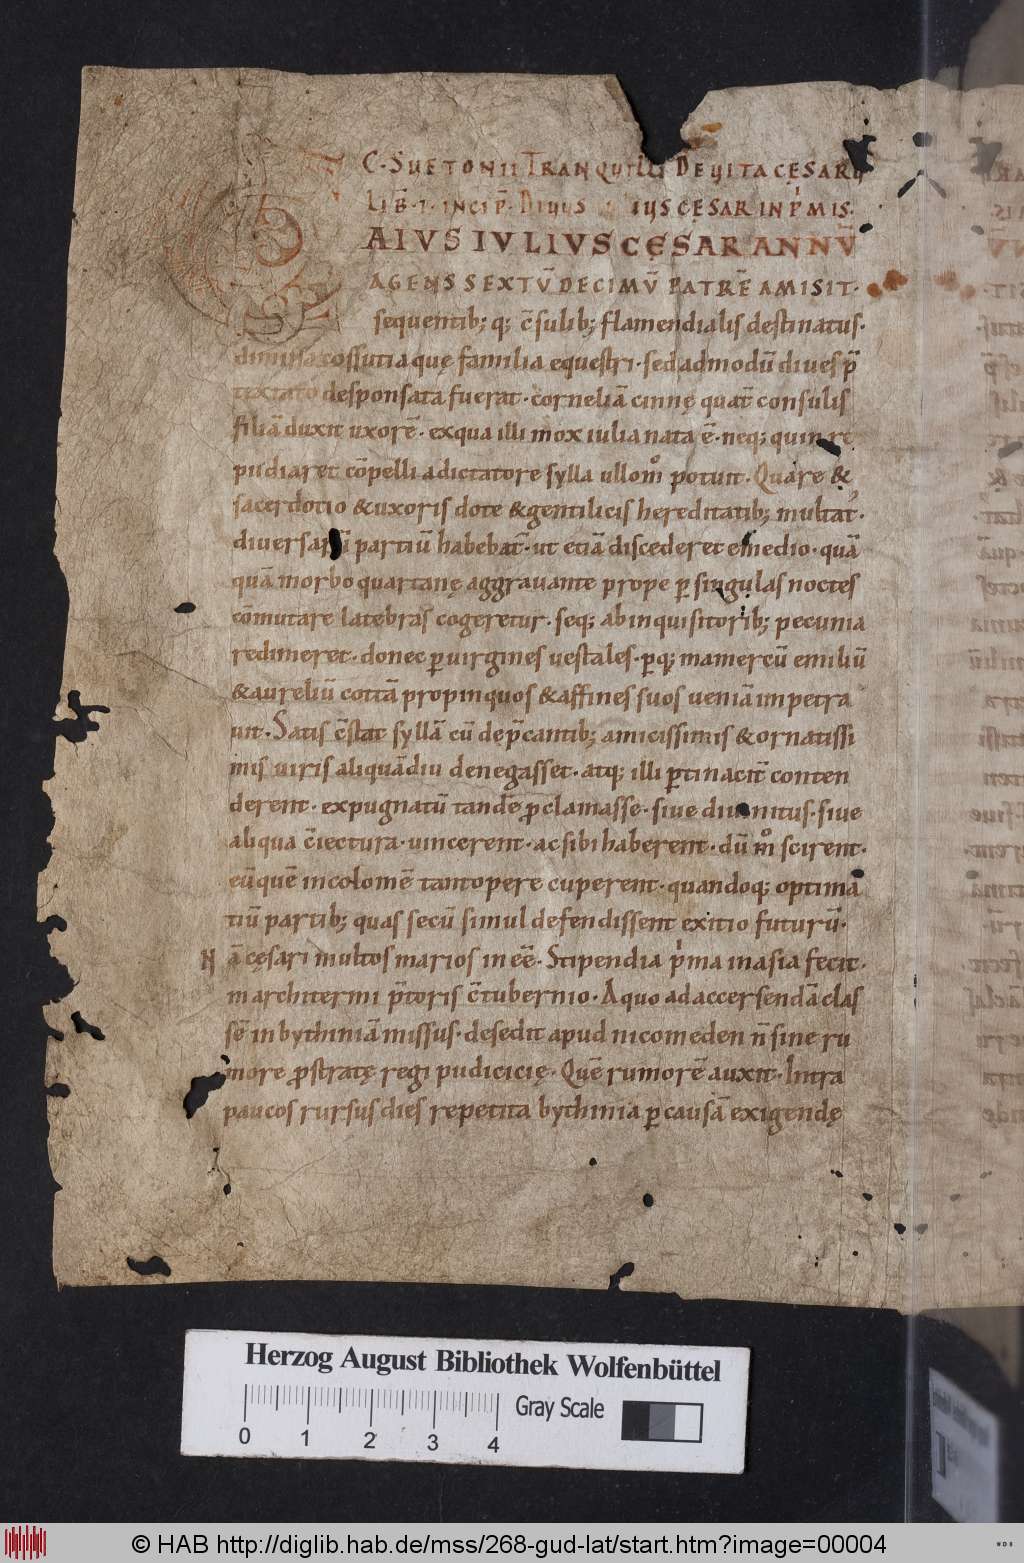 C · SUETONII TRANQUILLI DE VITA CĘSARŪ
LIB̄ · I · INCIP̄ · DIVUS IUS CĘSAR IN PͥMIS ·
AIVS IVLIVS CĘSAR ANNŪ
AGENS SEXTŪ DECIMŪ PATRĒ AMISIT ·
sequentib; q; c̄sulib; flamendialis destinatus ·
dimissa cossutia quę familia equestri · sed admodū diues p̄
textato desponsata fuerat · corneliā cinnę quat̄ consulis
filiā duxit uxorē · exqua illi mox iulia nata ē · neq; quin re
pudiaret cōpelli adictatore sylla ullomͦ potuit · Quare &
sacerdotio & uxoris dote & gentiliciis hereditatib; multat᾿ ·
diuersarū partiū habebat᾿ · ut etiā discederet emedio · quā
quā morbo quartanę aggrauante prope ꝑ singulas noctes
cōmutare latebras cogeretur · seq; ab inquisitorib; pecunia
redimeret · donec ꝑ uirgines uestales · ꝑq; mamercū emiliū
& aureliū cottā propinquos & affines suos ueniā impetra
uit · Satis c̄stat syllā cū dep̄cantib; amicissimis & ornatissi
mis uiris aliquādiu denegasset · atq; illi ꝑtinacit᾿ conten
derent · expugnatū tandē ꝓclamasse · siue diuinitus · siue
aliqua c̄iectura · uincerent · ac sibi haberent · dū mͦ scirent ·
eūquē incolomē tantopere cuperent · quandoq; optimā
tiū partib; quas secū simul defendissent exitio futurū ·
Nā cęsari multos marios in eē · Stipendia pͥma inasia fecit ·
marchi termi p̄toris c̄tubernio · Aquo ad accersendā clas
sē in bythiniā missus · desedit apud nicomeden n̄ sine ru
more ꝓstratę regi pudicicię · Quē rumorē auxit · Intra
paucos rursus dies repetita bythinia ꝑ causā exigendę
Herzog August Bibliothek Wolfenbüttel
Gray Scale
0 1 2 3 4
© HAB http://diglib.hab.de/mss/268-gud-lat/start.htm?image=00004